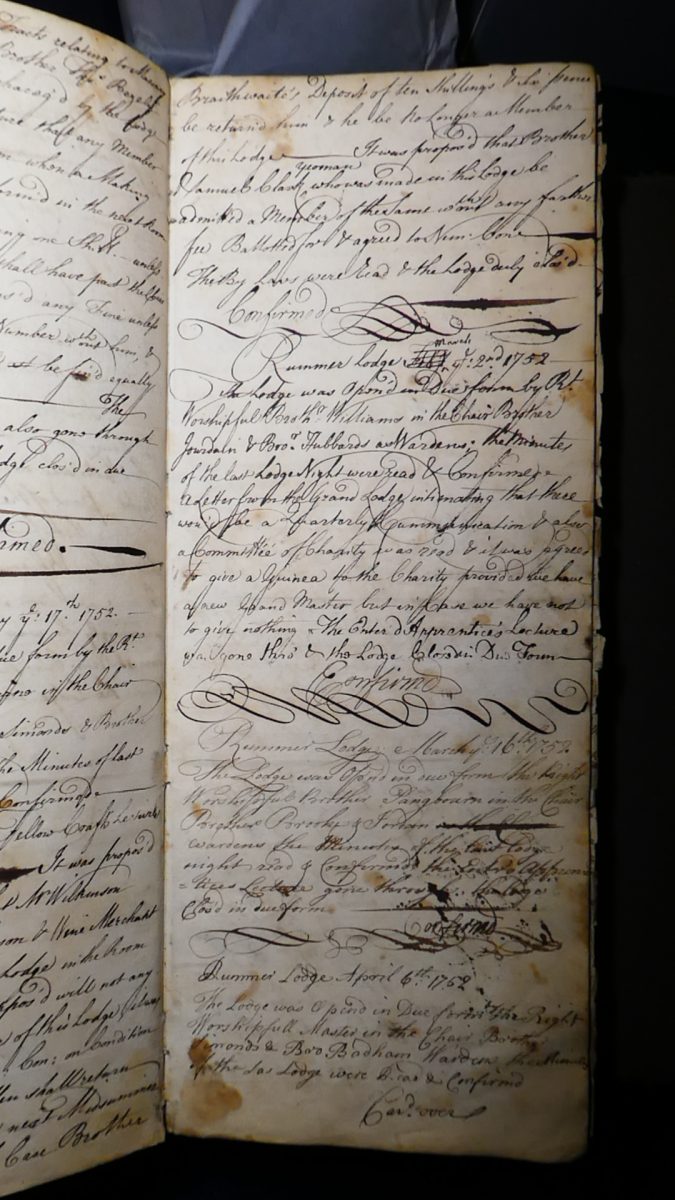 Tracts relating to
Brother Thos.
by the Lodge
that any Member
when a Making
in the next Room
one Shift unless
shall have past the
any Fine unless
Number wth. him, &
be paid equally
The
also gone through
Lodge clos'd in due
ye. 17th. 1752
due form by the Rt.
in the Chair
Simonds & Brother
the Minutes of last
Confirmed
Fellow Craft Lecture
It was propos'd
Mr Wilkinson
& Wine Merchant
Lodge in the Room
propos'd will not any
of this Lodge
Con: on Condition
shall return
next Midsummer
Case Brother
Braithwaite's Deposit of ten Shillings & Six pence
be return'd him & he be No longer a Member
of this Lodge It was propos'd that Brother
Samuel Clark yeoman who was made in this Lodge be
admitted a Member of the same wth.out any farther
fee Ballotted for & agreed to Nem: Con:
The By Laws were Read & the Lodge duly clos'd
Confirmed
Rummer Lodge March ye. 2nd 1752
The Lodge was Opend in Due form by Rt.
Worshipful Brothr. Williams in the Chair Brother
Jourdain & Bror. Hubbards as Wardens; the Minutes
of the last Lodge Night were read & Confirmed
a Letter from the Grand Lodge intimating that there
wou'd be a Quarterly Communication & also
a Committee of Charity was read & it was agreed
to give a Guinea to the Charity provided we have
a new Grand Master but in Case we have not
to give nothing The Enter'd Apprentice's Lecture
was gone thro' & the Lodge Closd in Due Form
Confirmd
Rummer Lodge March ye. 16th. 1752
The Lodge was Opend in due form the Right
Worshippful Brother Pangbourn in the Chair
Brother Brooke & Jordan
wardens the Minutes of the last lodge
night read & Confirmed the Enter'd Appren
=tices Lecture gone throw the lodge
Closd in due form
Confirmd
Rummer Lodge April 6th. 1752
The Lodge was Opend in Due form the Right
Worshippfull Master in the Chair Brother
Simonds & Bro Badham Wardens the Minutes
of the Las Lodge were Read & Confirmd
Card. over